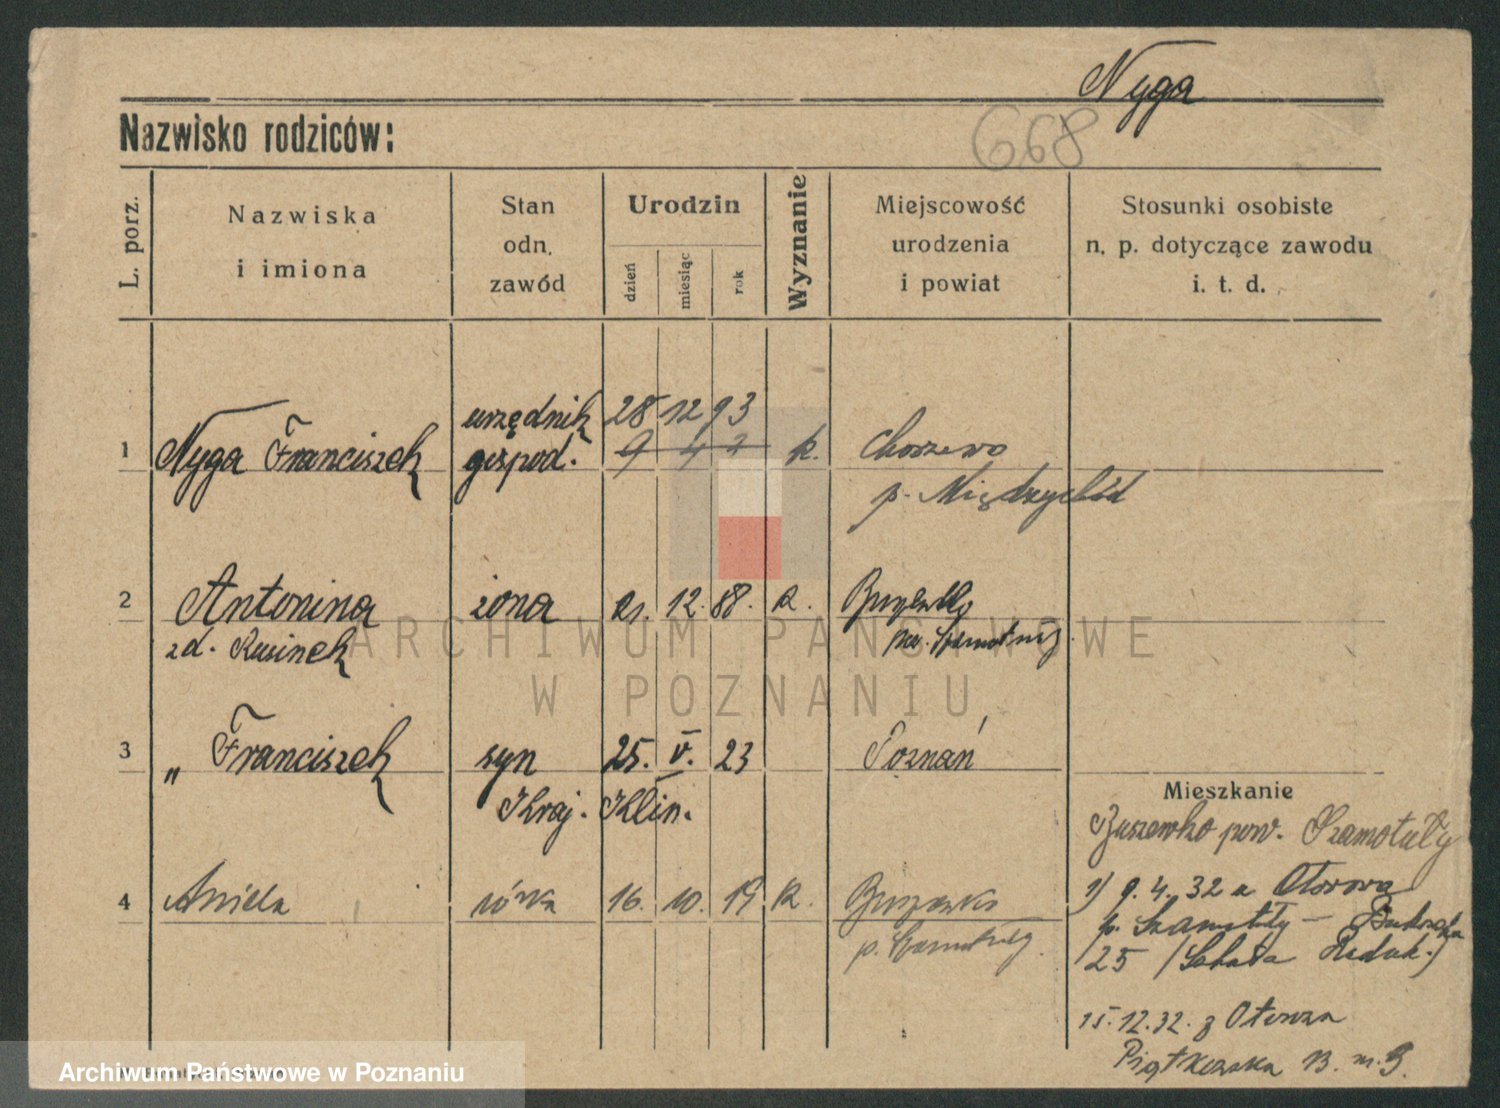 Nyga
Nazwisko rodziców:
668
L. porz.
Nazwiska
i imiona
Stan
odn.
zawód
Urodzin
dzień
miesiąc
rok
Wyznanie
Miejscowość
urodzenia
i powiat
Stosunki osobiste
n. p. dotyczące zawodu
i. t. d.
1 Nyga Franciszek urzędnik gospod. 28 12 93 k. Chorzewo
9 4
p. Międzychód
2 Antonina żona 21. 12. 88. k. Buszewko
zd. Rusinek pow. Szamotuły
3 " Franciszek syn 25. V. 23 Poznań
Kraj. Klin.
Mieszkanie
Buszewko pow. Szamotuły
4 Aniela córka 16. 10. 19 k. Buszewko
p. Szamotuły
1) 9.4.32 z Otorowa
p. Szamotuły - Bukowska
25
15.12.32. z Otorowa
Piątkowska 13. m. 3.
ARCHIWUM PAŃSTWOWE
W POZNANIU
Archiwum Państwowe w Poznaniu